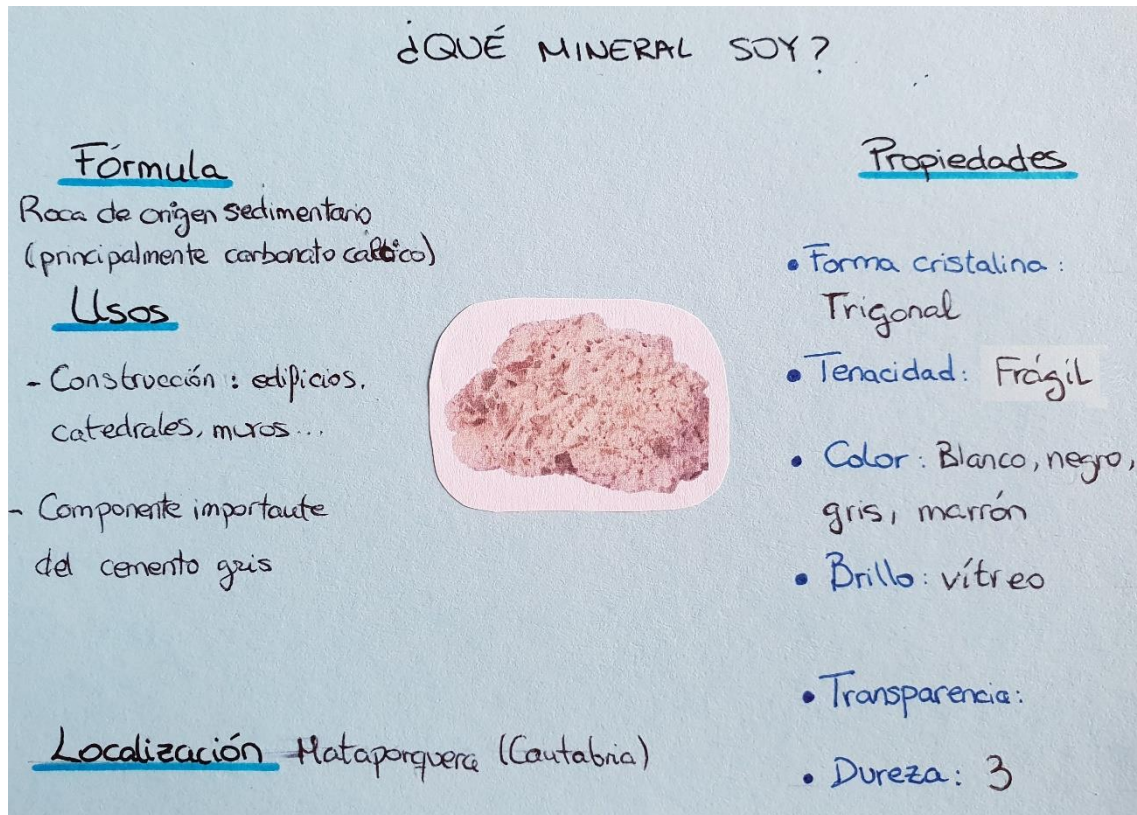 ¿QUÉ MINERAL SOY?
Fórmula
Roca de origen sedimentario
(principalmente carbonato cálcico)
Usos
- Construcción : edificios,
catedrales, muros...
- Componente importante
del cemento gris
Localización Mataporquera (Cantabria)
Propiedades
• Forma cristalina :
Trigonal
• Tenacidad: Frágil
• Color : Blanco, negro,
gris, marrón
• Brillo : vítreo
• Transparencia:
• Dureza : 3